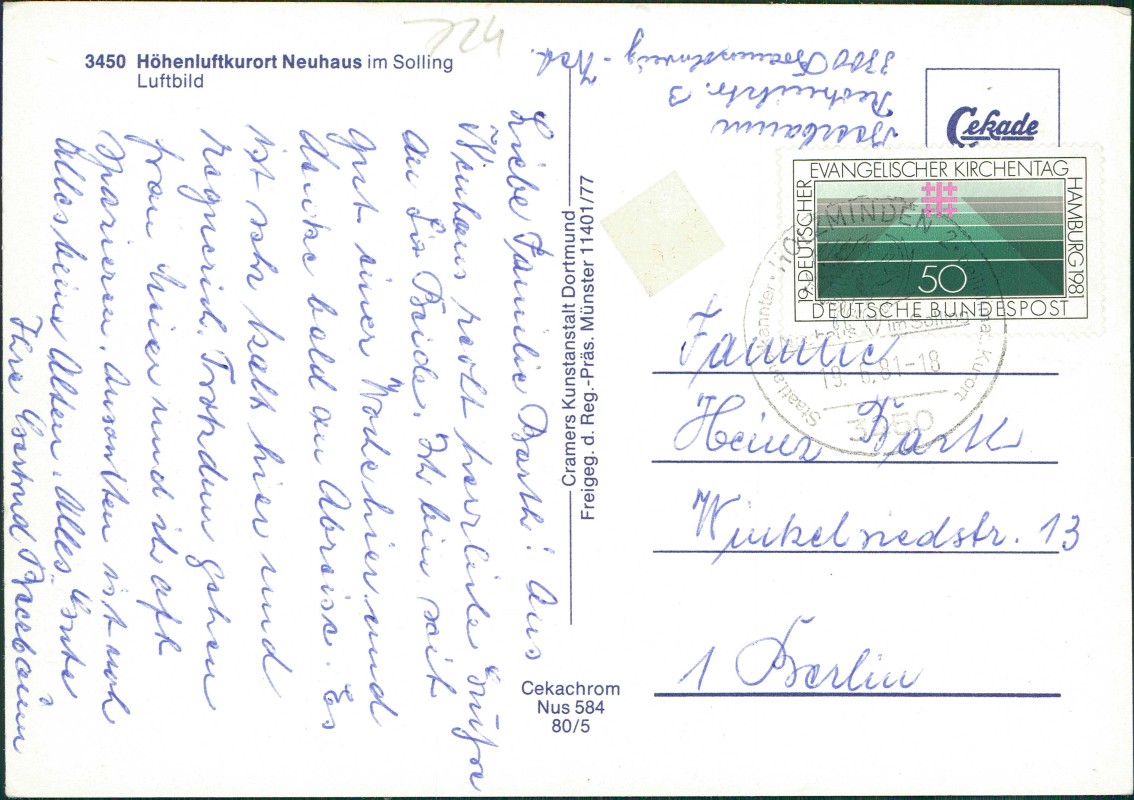 3450 Höhenluftkurort Neuhaus im Solling
Luftbild
224
3300 Braunschweig
3
Cekade
19. DEUTSCHER EVANGELISCHER KIRCHENTAG HAMBURG 1981
50
DEUTSCHE BUNDESPOST
HOLZMINDEN 2
Staatlich anerkannter
heilklimat. Kurort
im Solling
18.6.81-18
3450
Liebe Familie Barth! Aus
Neuhaus recht herzliche Grüße
an Sie Beide. Ich bin seit
gut einer Woche hier und
denke bald an Abreise. Es
ist sehr kalt hier und
regnerisch. Trotzdem gehen
Frau Meier und ich oft
spazieren. Ansonsten ist noch
alles beim Alten. Alles Gute
Ihre Gertrud Beerbaum
Cramers Kunstanstalt Dortmund
Freigeg. d. Reg.-Präs. Münster 11401/77
Familie
Heinz Barth
Winkelriedstr. 13
1 Berlin
Cekachrom
Nus 584
80/5